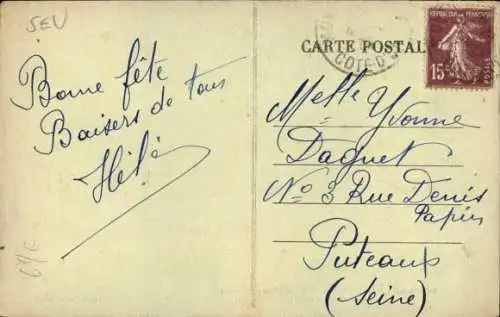 SEV
Bonne fête
Baisers de tous
CARTE POSTAL
RÉPUBLIQUE FRANÇAISE
15
POSTES
COTE-D
Melle Yvonne
Daguet
No 3 Rue Denis
Papin
Puteaux
(Seine)